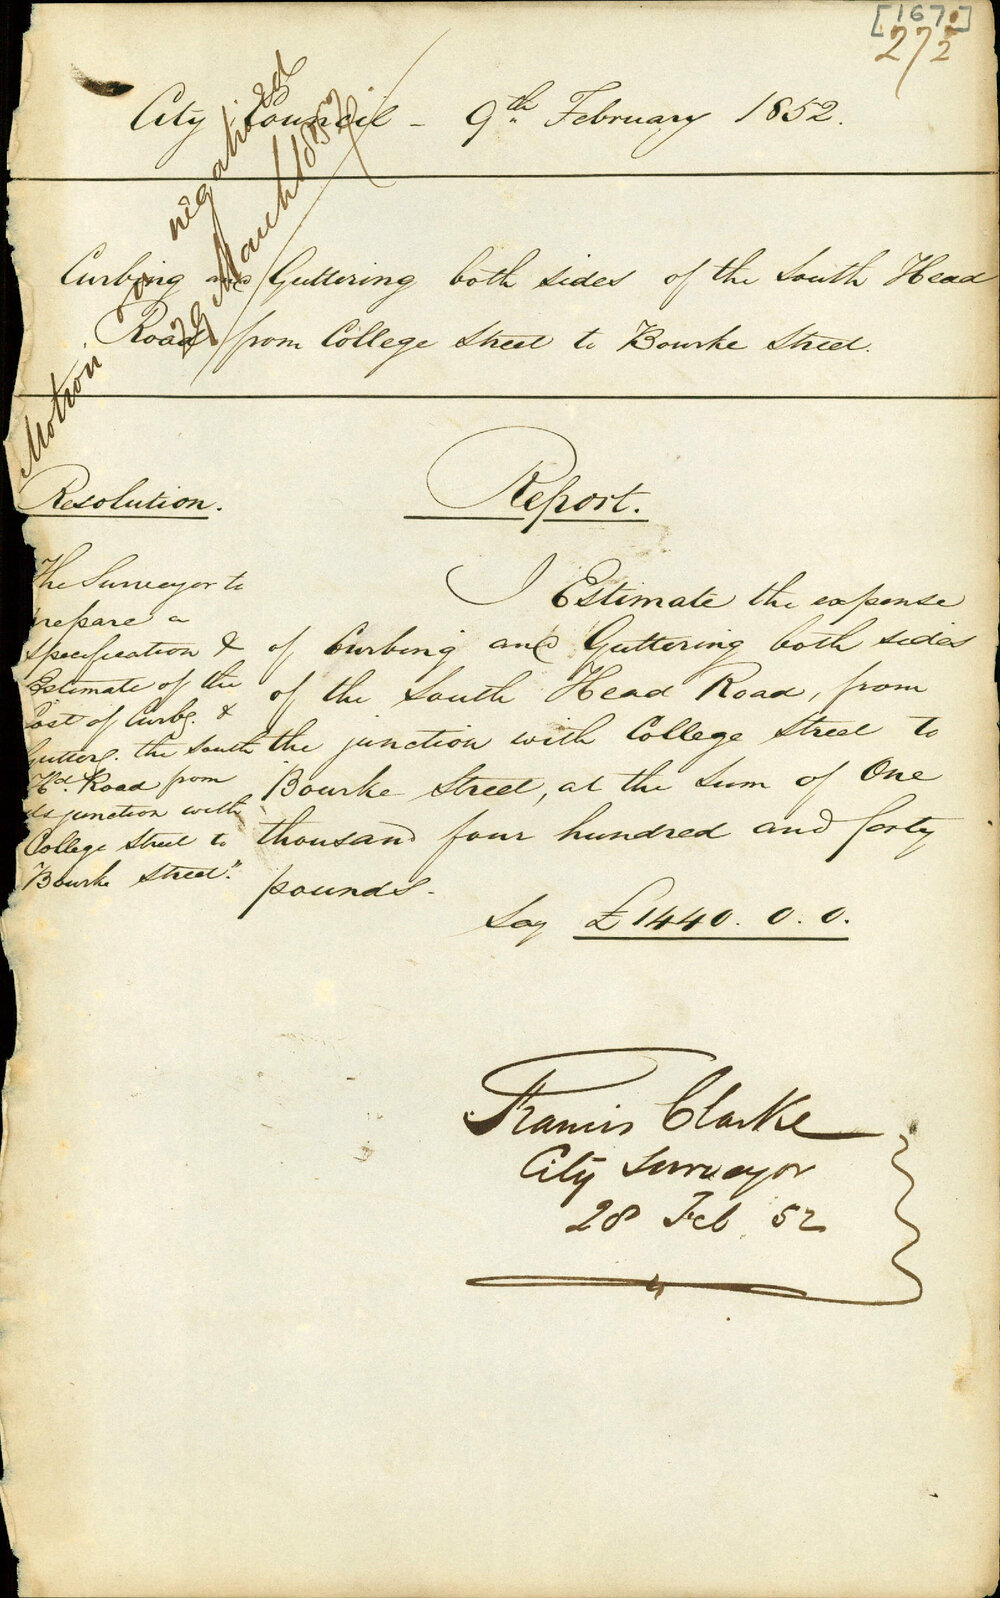 [167]
27/2
City Council - 9th February 1852.
Motion negatived
29 March 1852
Curbing and Guttering both sides of the South Head
Road from College Street to Bourke Street.
Resolution.
The Surveyor to
repare a
specification &
Estimate of the
Cost of Curbg. &
Gutterg. the South
Hd. Road from
its junction with
College Street to
Bourke Street."
Report.
I Estimate the expense
of Curbing and Guttering both sides
of the South Head Road, from
the junction with College Street to
Bourke Street, at the Sum of One
thousand four hundred and forty
pounds.
Say £1440. 0. 0.
Francis Clarke
City Surveyor
28 Feb 52